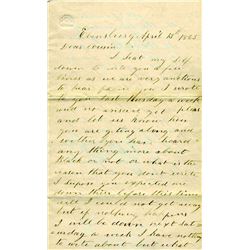 Ebensburg April 12th 1865
Dear Cousin
I Seat my self
down to write you a few
lines as we are very anctious
to hear from you I wrote
to you last thursday a week
and no answer yet please
and let us know how
you are geting along and
wether you have heard
any thing more about
or not or what is the
reason that you dont write
I supose you expected me
down there before this time
well I could not get away
but if nothing happens
I will be down next Sat
urday a week I have nothing
to write about but what